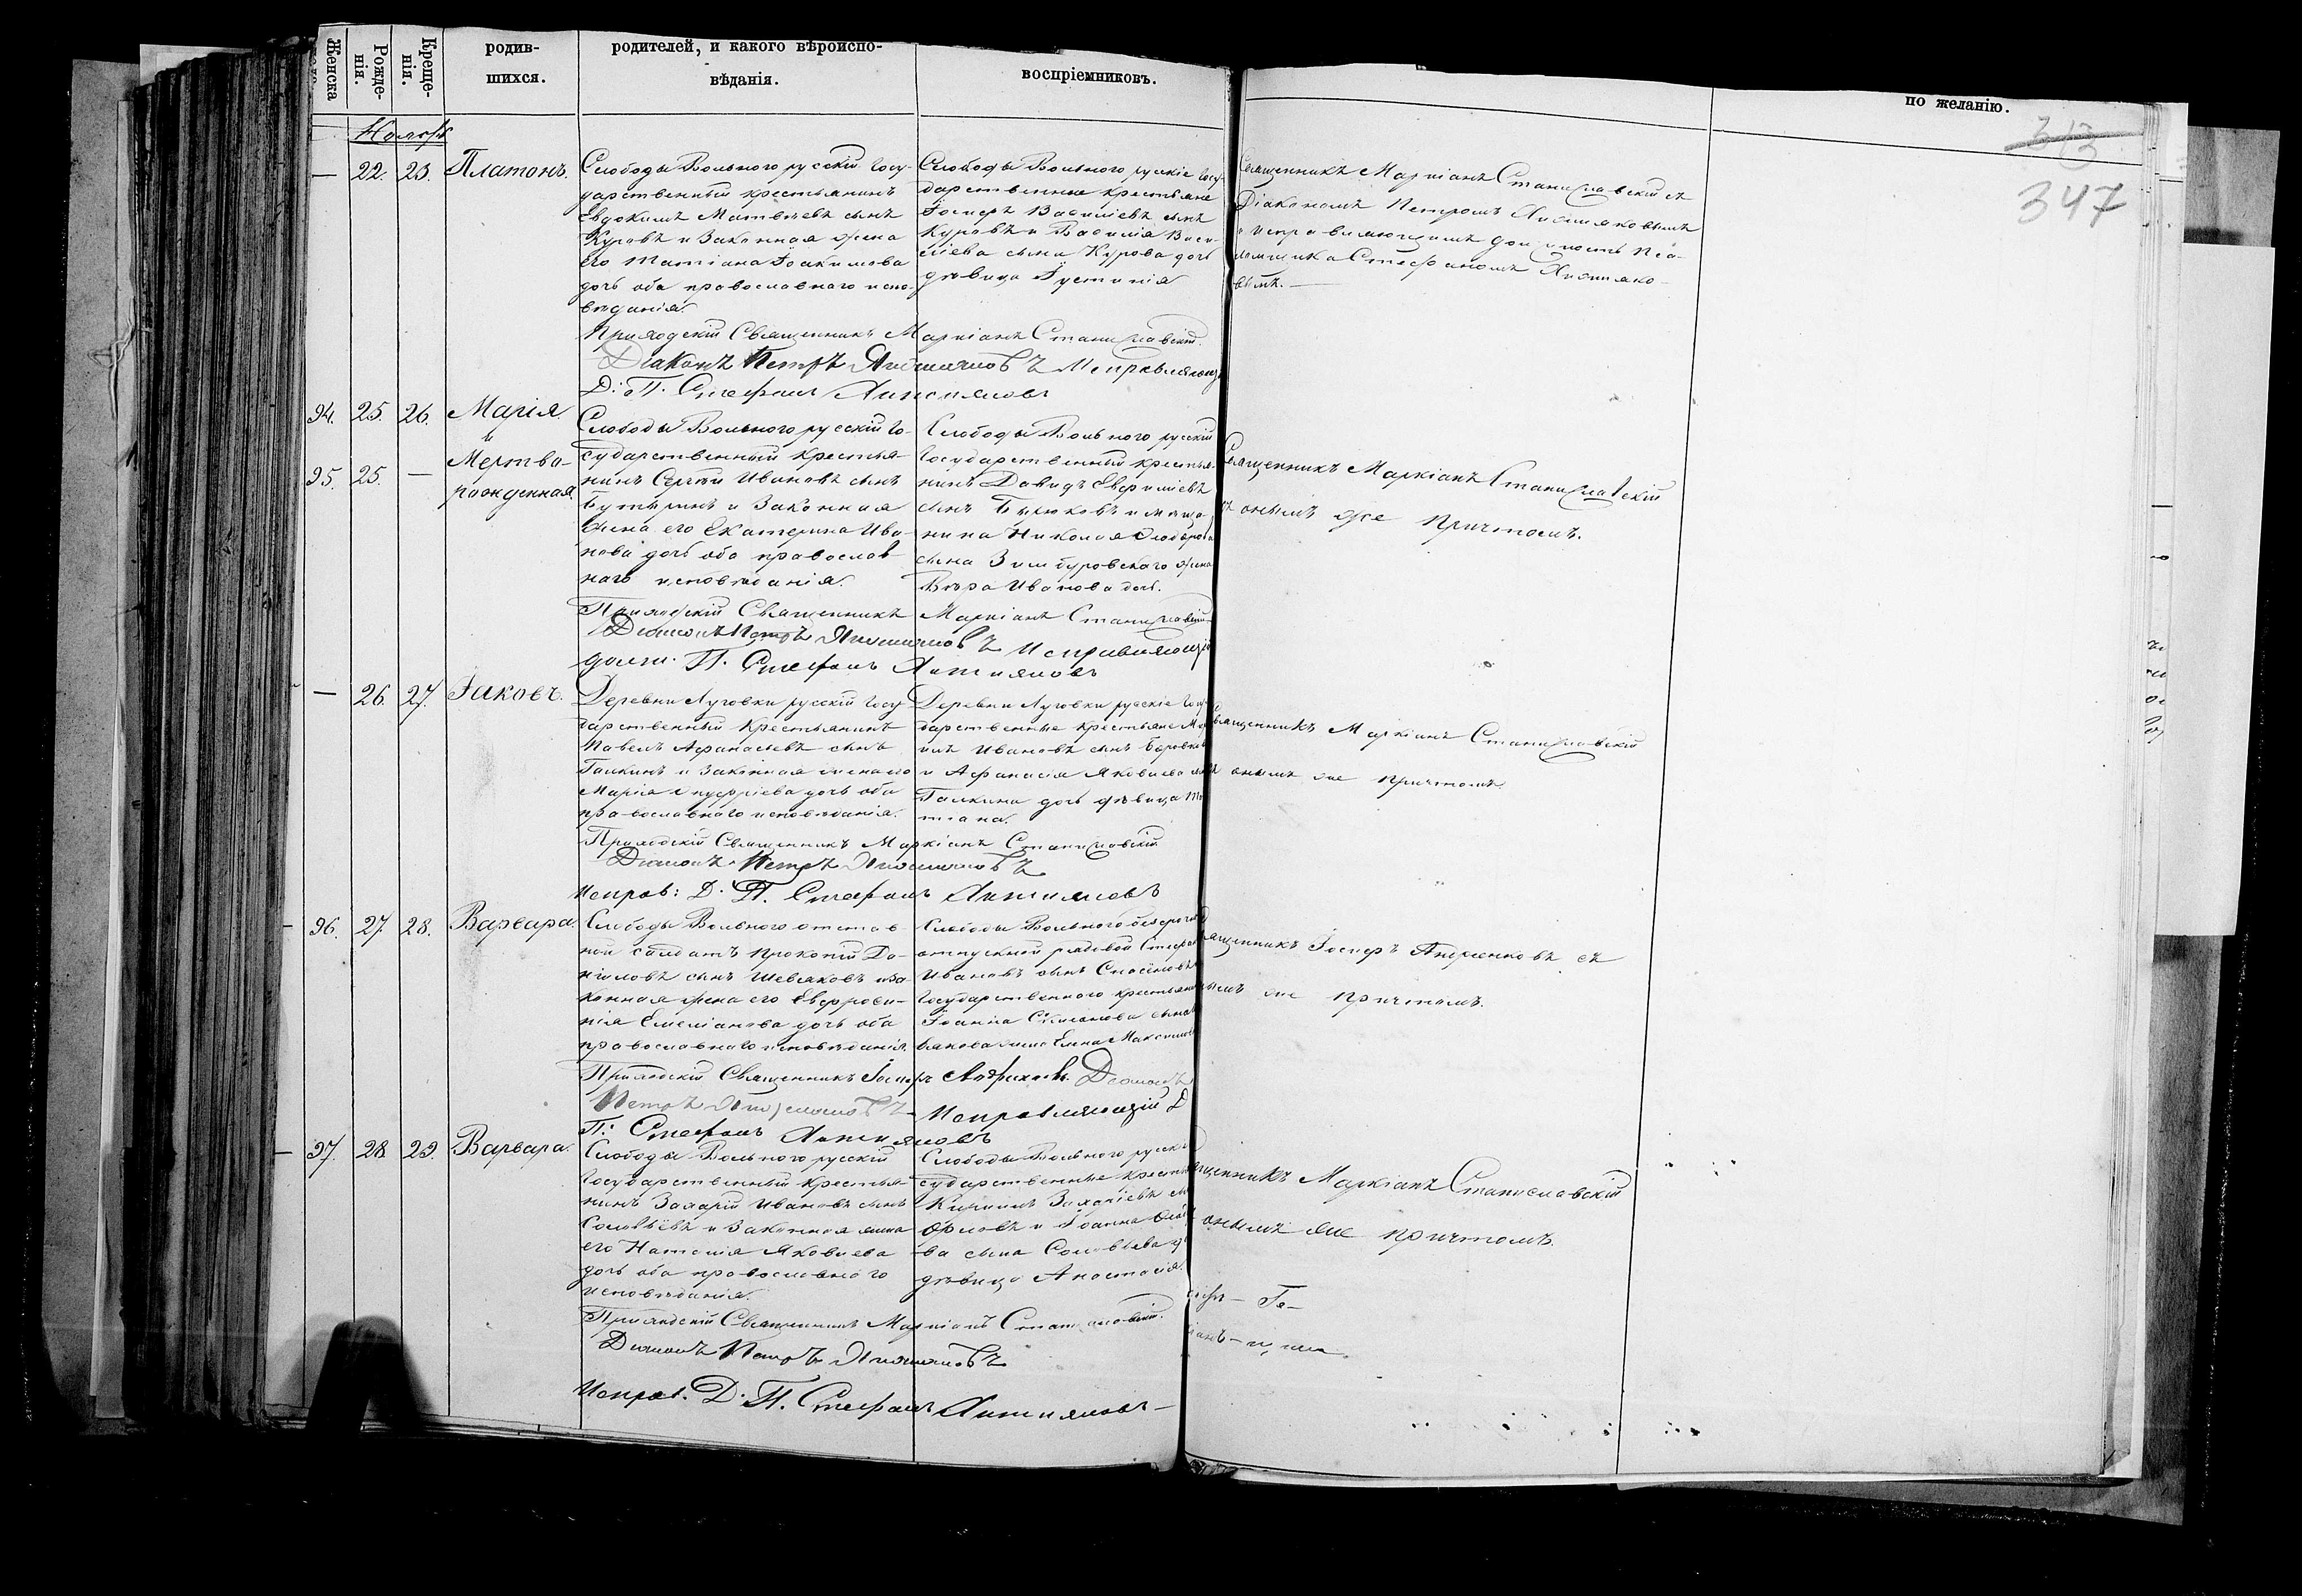 Женска
Рожде-
нія.
Креще-
нія.
родив-
шихся.
родителей, и какого вѣроиспо-
вѣданія.
воспріемниковъ.
по желанію.
313
347
Ноябрь
— 22. 23. Платонъ.
Слободы Вольного русскій Госу-
дарственный крестьянинъ
Евдокимъ Матвѣевъ сынъ
Куровъ и Законная жена
его Татіана Іоакимова
дочь оба православнаго испо-
вѣданія.
Слободы Вольного русскіе Госу-
дарственные крестьяне
Іосифъ Василіевъ сынъ
Куровъ и Василія Васи-
лiева сына Курова дочь
дѣвица Іустинія
Священникъ Маркіанъ Станиславскій съ
Діакономъ Петромъ
и исправляющимъ должность Пса-
ломщика Стефаномъ
вымъ. —
Приходскій Священникъ Маркіанъ Станиславскій.
Діаконъ Петръ Исправляющ.
Д. П. Стефанъ
94. 25. 26. Марія
и
95. 25. — Мертво-
рожденная
Слободы Вольного русскій Го-
сударственный крестья-
нинъ Сергѣй Ивановъ сынъ
Бутыринъ и Законная
жена его Екатерина Ива-
нова дочь оба православ-
наго исповѣданія.
Слободы Вольного русскій
Государственный крестья-
нинъ Давидъ
сынъ и мѣща-
нина Николая
сына жена
Вѣра Иванова дочь.
Священникъ Маркіанъ Станиславскій
съ онымъ же причтомъ.
Приходскій Священникъ Маркіанъ Станиславскій
Діаконъ Петръ Исправляющій
должн. П. Стефанъ
— 26. 27. Іаковъ.
Деревни Луговки русскій Госу-
дарственный Крестьянинъ
Павелъ Афанасьевъ сынъ
Галкинъ и Законная жена его
Марія Онуфріева дочь оба
православнаго исповѣданія.
Деревни Луговки русскіе Госу-
дарственные крестьяне
Ивановъ сынъ
и Афанасія Яковлева
Галкина дочь дѣвица Та-
тіана.
Священникъ Маркіанъ Станиславскій
съ онымъ же причтомъ.
Приходскій Священникъ Маркіанъ Станиславскій
Діаконъ Петръ
Исправ: Д. П. Стефанъ
96. 27. 28. Варвара.
Слободы Вольного отстав-
ной солдатъ Прокопій Да-
ніиловъ сынъ Шевляковъ и за-
конная жена его Евфроси-
нія Емеліанова дочь оба
православнаго исповѣданія.
Слободы Вольного безсрочно
отпускной рядовой Стефанъ
Ивановъ сынъ
Государственного крестьянина
Іоанна сына
жена Елена Максимова
Священникъ Іосифъ съ
онымъ же причтомъ.
Приходскій Священникъ Іосифъ Діаконъ
Петръ Исправляющій Д.
П: Стефанъ
97. 28. 29. Варвара.
Слободы Вольного русскій
Государственный крестья-
нинъ Захарій Ивановъ сынъ
Соловьёвъ и Законная жена
его Наталія Яковлева
дочь оба православнаго
исповѣданія.
Слободы Вольного русскіе
сударственные крестьяне
Кириллъ Захаріевъ
Орловъ и Іоанна
ва сына Соловьева
дѣвица Анастасія.
Священникъ Маркіанъ Станиславскій
съ онымъ же причтомъ.
Приходскій Священникъ Маркіанъ Станиславскій.
Діаконъ Петръ
Исправ. Д. П. Стефанъ